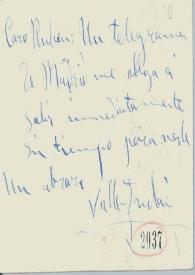 Caro Rubén: Un telegrama
de Madrid me obliga á
salir inmediatamente
sin tiempo para verle
Un abrazo
Valle-Inclán
2037